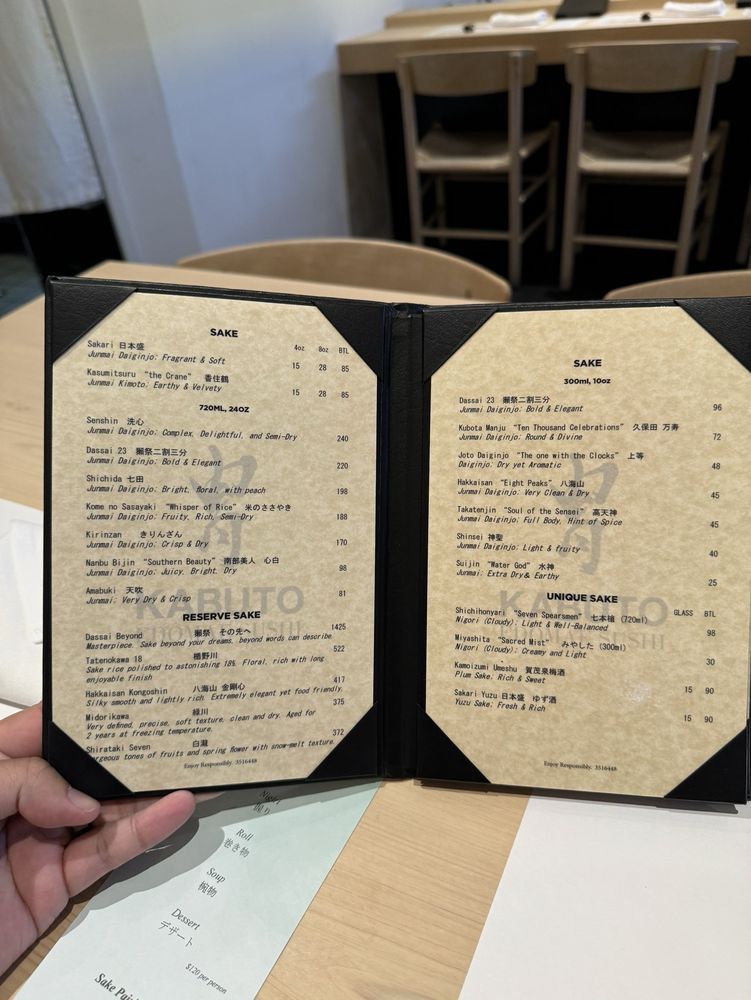 SAKE
4oz 8oz BTL
Sakari 日本盛
Junmai Daiginjo: Fragrant & Soft
15 28 85
Kasumitsuru “the Crane” 香住鶴
Junmai Kimoto: Earthy & Velvety
15 28 85
720ML, 24OZ
Senshin 洗心
Junmai Daiginjo: Complex, Delightful, and Semi-Dry 240
Dassai 23 獺祭二割三分
Junmai Daiginjo: Bold & Elegant 220
Shichida 七田
Junmai Daiginjo: Bright, floral, with peach 198
Kome no Sasayaki “Whisper of Rice” 米のささやき
Junmai Daiginjo: Fruity, Rich, Semi-Dry 188
Kirinzan きりんざん
Junmai Daiginjo: Crisp & Dry 170
Nanbu Bijin “Southern Beauty” 南部美人 心白
Junmai Daiginjo: Juicy, Bright, Dry 98
Amabuki 天吹
Junmai: Very Dry & Crisp 81
KABUTO
RESERVE SAKE
Dassai Beyond 獺祭 その先へ 1425
Masterpiece. Sake beyond your dreams, beyond words can describe.
Tatenokawa 18 楯野川 522
Sake rice polished to astonishing 18%. Floral, rich with long
enjoyable finish
Hakkaisan Kongoshin 八海山 金剛心 417
Silky smooth and lightly rich. Extremely elegant yet food friendly.
Midorikawa 緑川 375
Very defined, precise, soft texture, clean and dry. Aged for
2 years at freezing temperature.
Shirataki Seven 白瀧 372
tones of fruits and spring flower with snow-melt texture.
Enjoy Responsibly. 3516448
SAKE
300ml, 10oz
Dassai 23 獺祭二割三分
Junmai Daiginjo: Bold & Elegant 96
Kubota Manju “Ten Thousand Celebrations” 久保田 万寿
Junmai Daiginjo: Round & Divine 72
Joto Daiginjo “The one with the Clocks” 上等
Daiginjo: Dry yet Aromatic 48
Hakkaisan “Eight Peaks” 八海山
Junmai Daiginjo: Very Clean & Dry 45
Takatenjin “Soul of the Sensei” 高天神
Junmai Daiginjo: Full Body, Hint of Spice 45
Shinsei 神聖
Junmai Daiginjo: Light & fruity 40
Suijin “Water God” 水神
Junmai: Extra Dry& Earthy 25
UNIQUE SAKE
GLASS BTL
Shichihonyari “Seven Spearsmen” 七本槍 (720ml)
Nigori (Cloudy): Light & Well-Balanced 98
Miyashita “Sacred Mist” みやした (300ml)
Nigori (Cloudy): Creamy and Light 30
Kamoizumi Umeshu 賀茂泉梅酒
Plum Sake: Rich & Sweet 15 90
Sakari Yuzu 日本盛 ゆず酒
Yuzu Sake: Fresh & Rich 15 90
Enjoy Responsibly. 3516448
Nigiri
握り
Roll
巻き物
Soup
椀物
Dessert
デザート
$120 per person
Sake